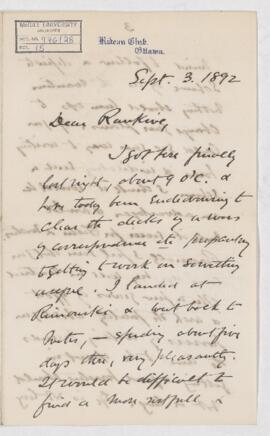 McGILL UNIVERSITY
ARCHIVES
ACC. NO. 926/28
REF. 15
3
Rideau Club,
Ottawa.
Sept. 3. 1892
Dear Rankine,
I got here
last night, about 9 o'c. &
have today been endeavouring to
clear the decks of arrears
of correspondence etc preparatory
to getting to work on something
useful. I landed at
Rimouski & went back to
Metis, — spending about five
days there, very pleasantly.
It would be difficult to
find a more restful &